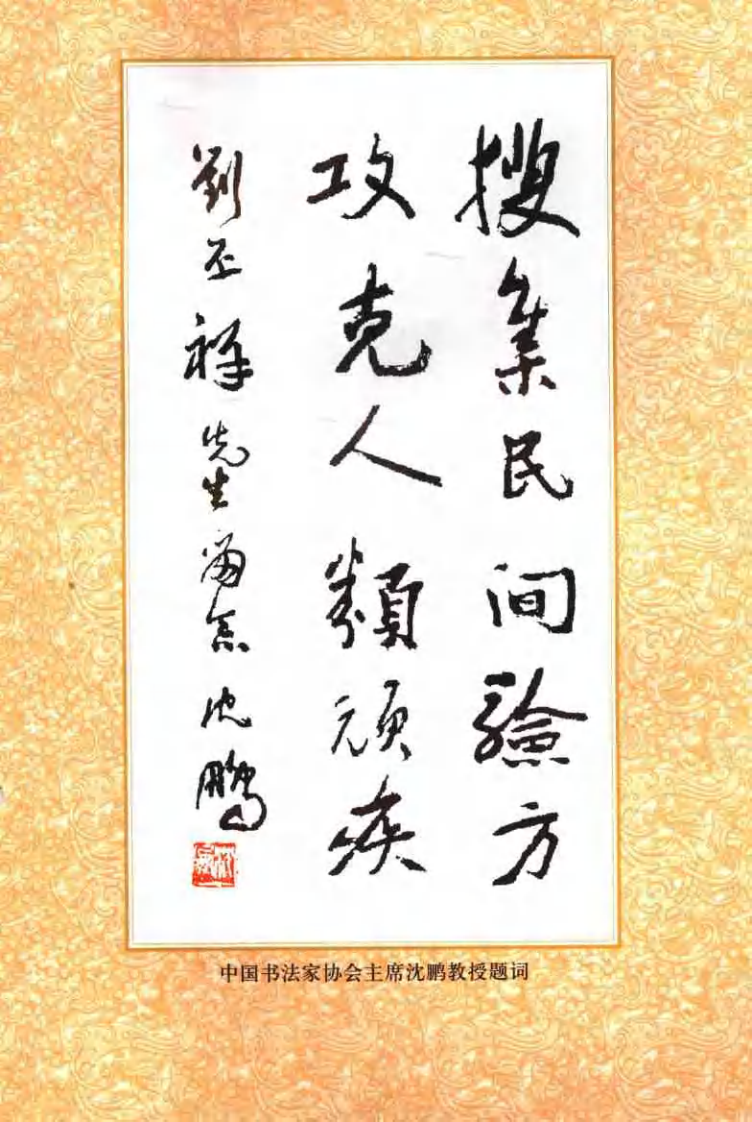 搜集民间驗方
攻克人類頑疾
劉丕祥先生留念 沈鹏
中国书法家协会主席沈鹏教授题词